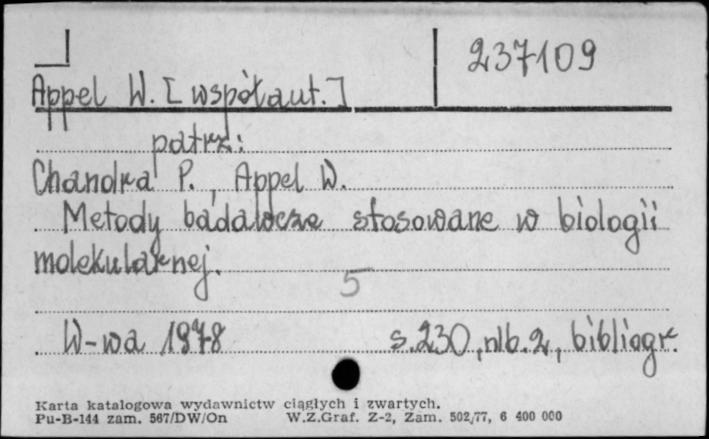 237109
Appel W. [współaut.]
patrz:
Chandra P., Appel W.
Metody badawcze stosowane w biologii
molekularnej.
5
W-wa 1978 s. 230, nlb. 2, bibliogr.
Karta katalogowa wydawnictw ciągłych i zwartych.
Pu-B-144 zam. 567/DW/On W.Z.Graf. Z-2, Zam. 502/77, 6 400 000